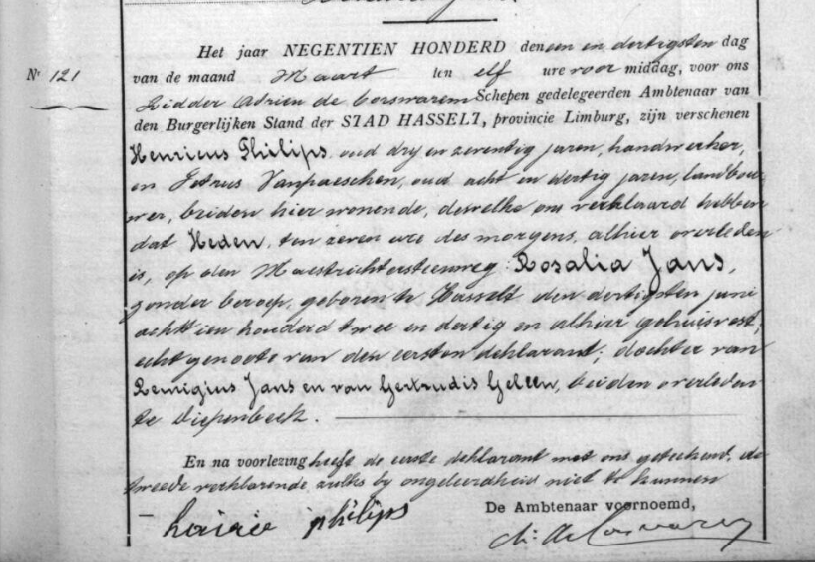 Het jaar NEGENTIEN HONDERD den een en dertigsten dag
Nr 121
van de maand Maart ten elf ure voor middag, voor ons
Ridder Adrien de Corswarem Schepen gedelegeerden Ambtenaar van
den Burgerlijken Stand der STAD HASSELT, provincie Limburg, zijn verschenen
Henricus Philips, oud dry en zeventig jaren, handwerker,
en Petrus Vanpaeschen, oud acht en dertig jaren, landbou-
wer, beiden hier wonende, dewelke ons verklaard hebben
dat Heden, ten zeven ure des morgens, alhier overleden
is, op den Maestrichtersteenweg Rosalia Jans,
zonder beroep, geboren te Hasselt den dertigsten juni
achttien honderd twee en dertig en alhier gehuisvest,
echtgenoote van den eersten deklarant; dochter van
Remigius Jans en van Gertrudis Geleen, beiden overleden
te Diepenbeek.
En na voorlezing heeft de eerste deklarant met ons geteekend, de
tweede verklarende zulks by ongeleerdheid niet te kunnen
philips
De Ambtenaar voornoemd,